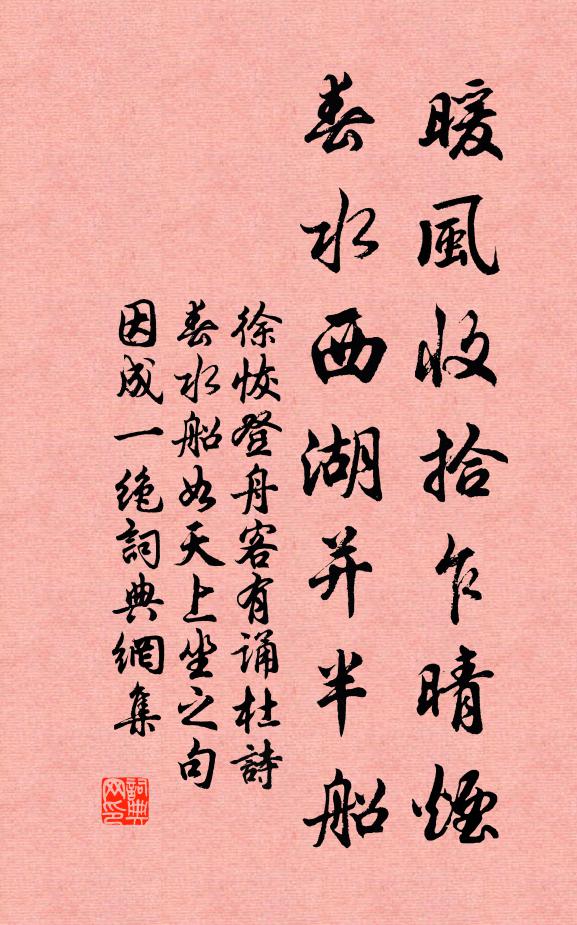 暖風收拾乍晴煙
春水西湖并半船
徐恢登舟客有誦杜詩
春水船如天上坐之句
因成一絶詞典網集
詞典
网印